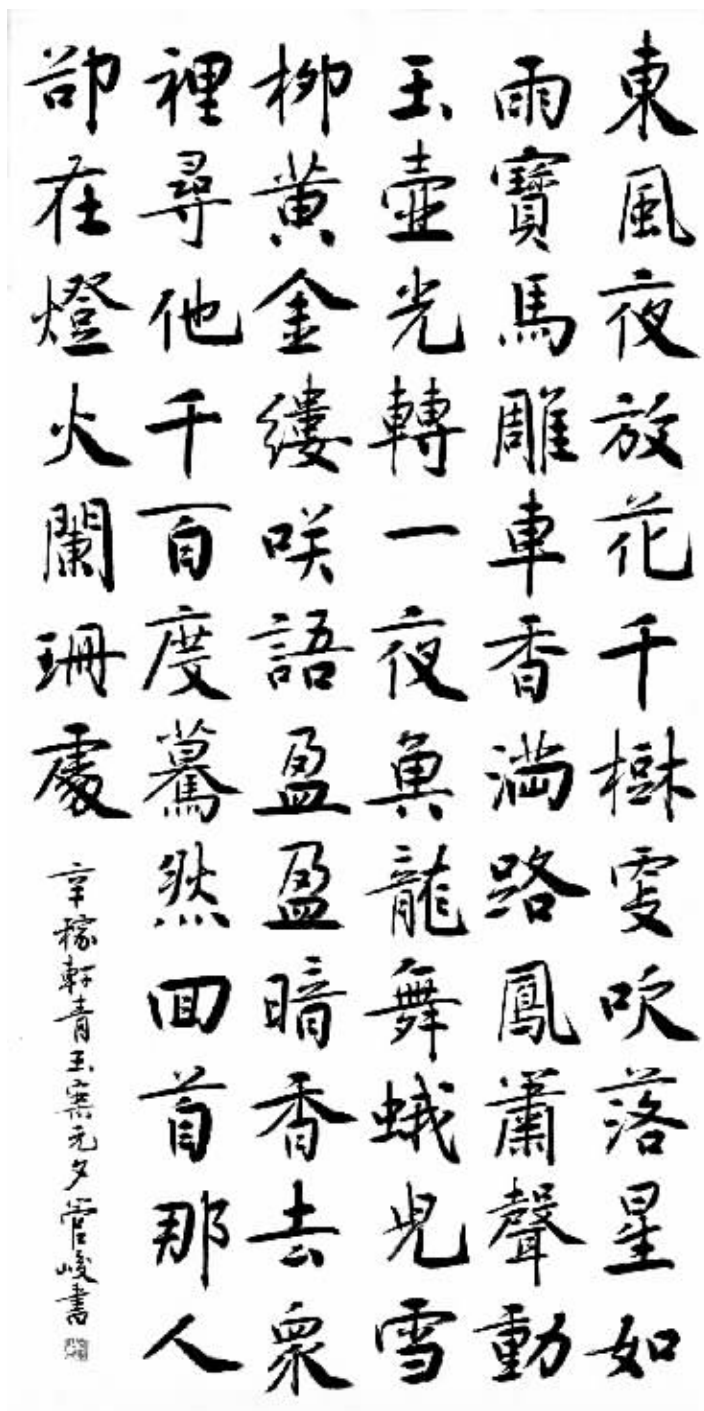 東風夜放花千樹更吹落星如
雨寶馬雕車香滿路鳳簫聲動
玉壺光轉一夜魚龍舞蛾兒雪
柳黄金縷咲語盈盈暗香去眾
裡尋他千百度驀然回首那人
卻在燈火闌珊處
辛稼軒青玉案元夕管峻書